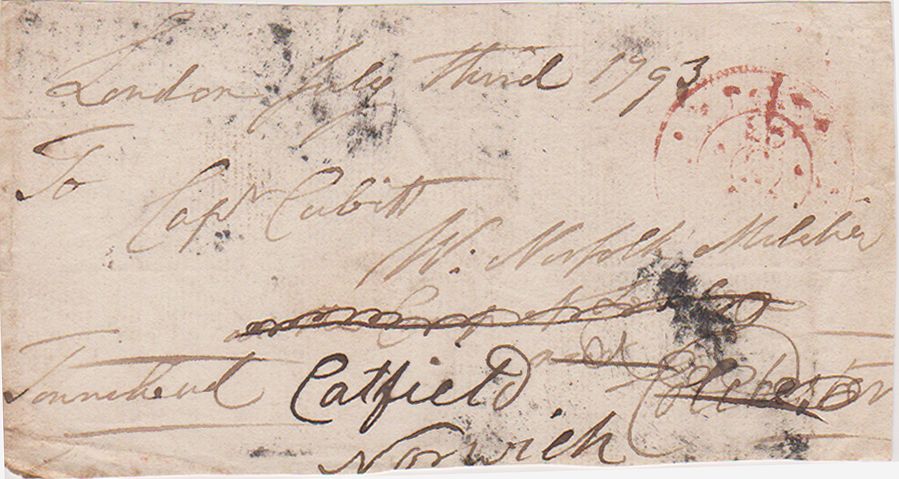 London July third 1793
To
Capt Cubitt
W. Norfolk Militia
Townshend Catfield Colchester
Norwich